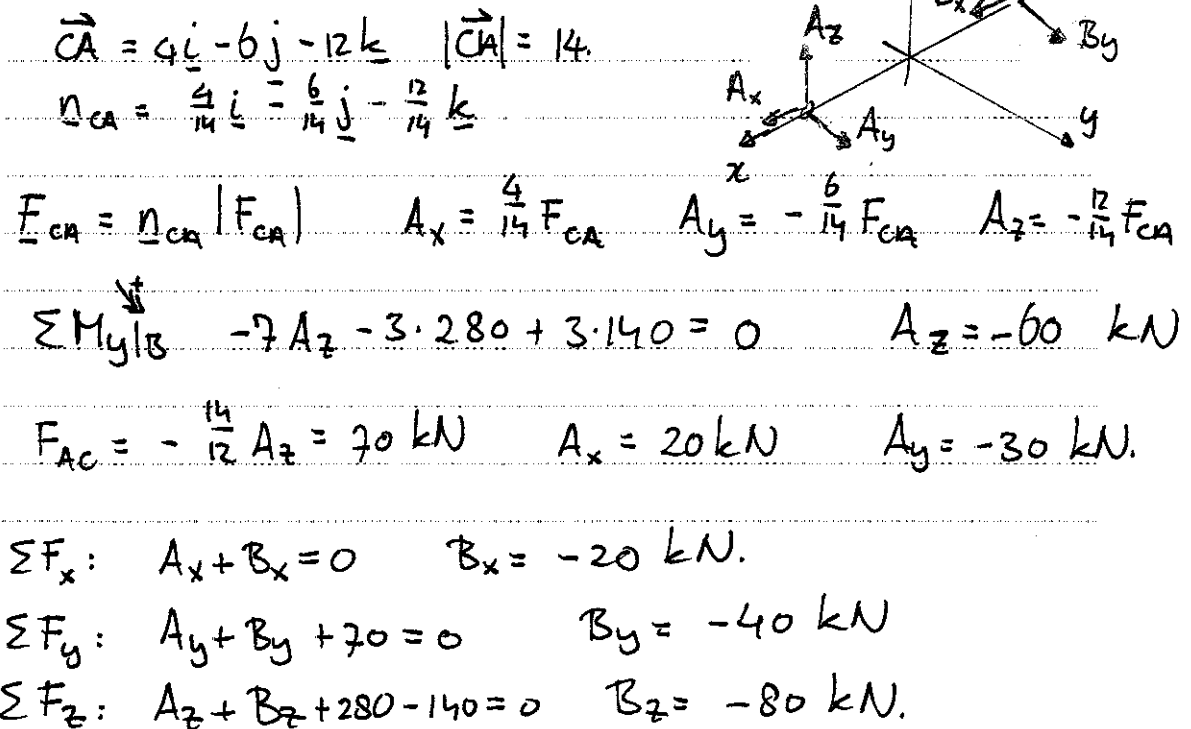 CA = 4i - 6j - 12k |CA| = 14.
n CA = 4/14 i - 6/14 j - 12/14 k
Az
By
Ax
Ay
y
x
F CA = n CA |F CA| Ax = 4/14 F CA Ay = - 6/14 F CA Az = - 12/14 F CA
ΣMy|B -7 Az - 3·280 + 3·140 = 0 Az = -60 kN
F AC = - 14/12 Az = 70 kN Ax = 20 kN Ay = -30 kN.
ΣFx: Ax + Bx = 0 Bx = -20 kN.
ΣFy: Ay + By + 70 = 0 By = -40 kN
ΣFz: Az + Bz + 280 - 140 = 0 Bz = -80 kN.